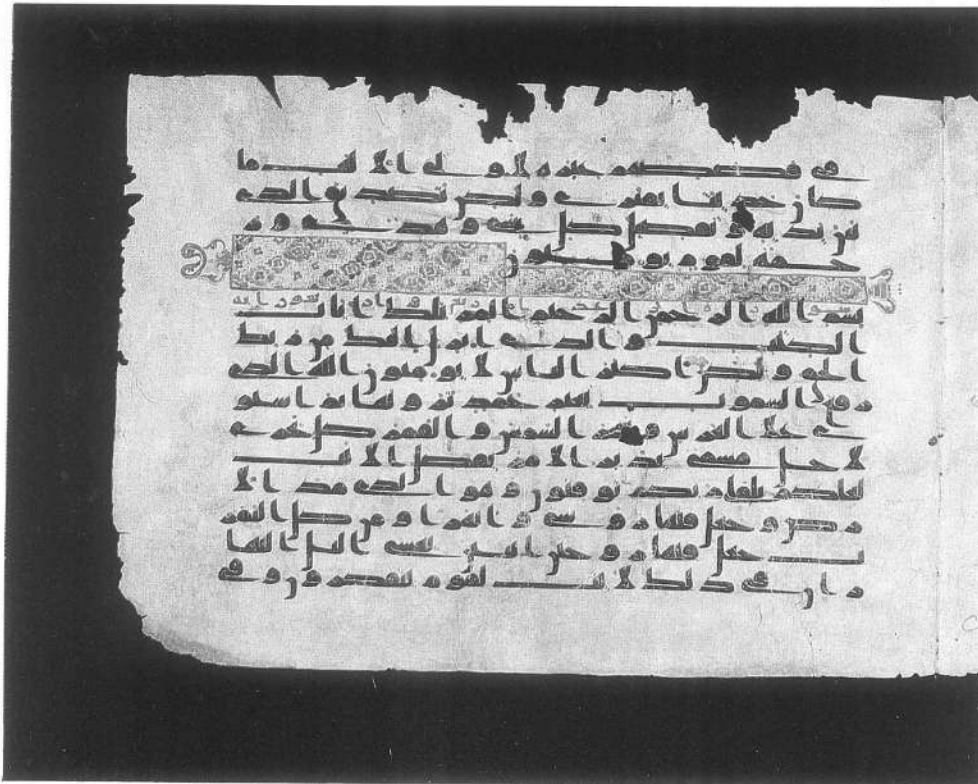 فى قصصهم عبرة لاولى الالبب ما
كان حديثا يفترى ولكن تصديق الذى
بين يديه وتفصيل كل شى وهدى ور
حمة لقوم يومنون
بسم الله الرحمن الرحيم المر تلك ايت
الكتب والذى انزل اليك من ربك
الحق ولكن اكثر الناس لا يومنون الله الذى
رفع السموت بغير عمد ترونها ثم استو
ى على العرش وسخر الشمس والقمر كل يجرى
لاجل مسمى يدبر الامر يفصل الايت
لعلكم بلقا ربكم توقنون وهو الذى مد الا
رض وجعل فيها روسى وانهرا ومن كل الثمر
ت جعل فيها زوجين اثنين يغشى اليل النها
ر ان فى ذلك لايت لقوم يتفكرون وفى